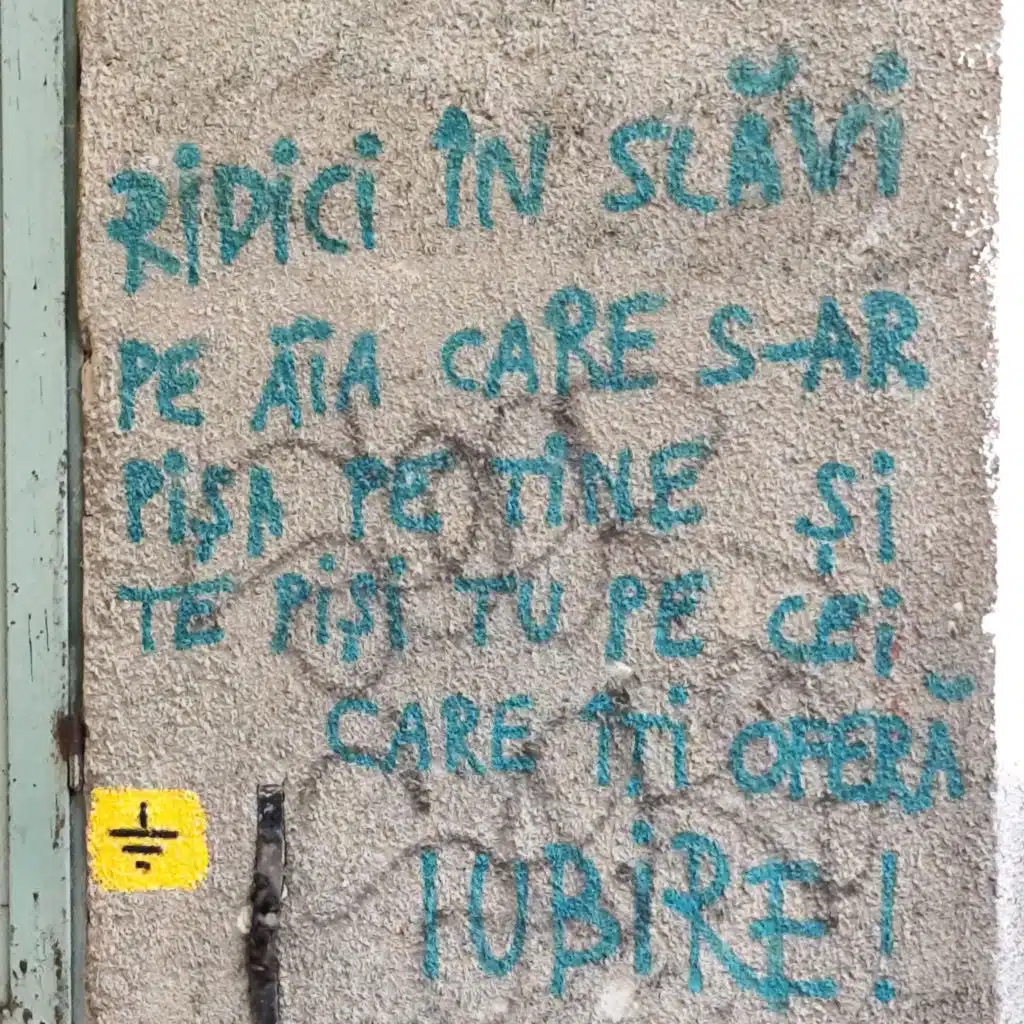 RIDICI ÎN SLĂVI
PE ĂÎA CARE S-AR
PIȘA PE TINE ȘI
TE PIȘI TU PE CEI
CARE ÎȚI OFERĂ
IUBIRE!